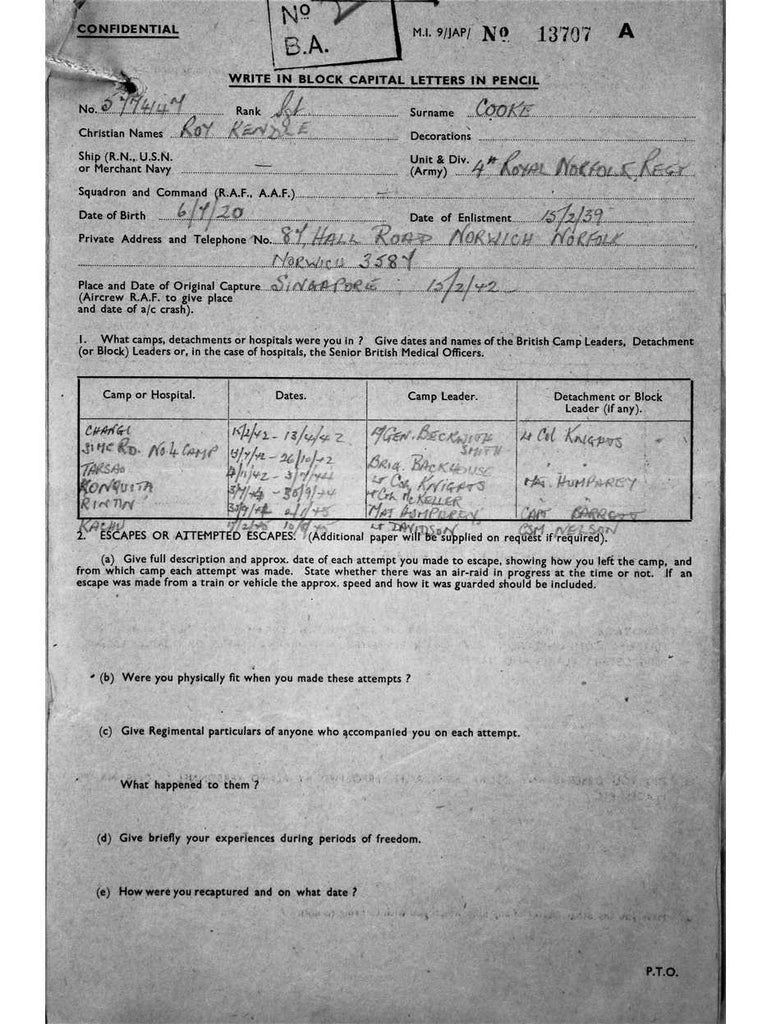 CONFIDENTIAL
No
B.A.
M.I. 9/JAP/ No 13707 A
WRITE IN BLOCK CAPITAL LETTERS IN PENCIL
No. 5774447 Rank Sgt. Surname COOKE
Christian Names ROY KENDLE Decorations
Ship (R.N., U.S.N.
or Merchant Navy —
Unit & Div.
(Army) 4th ROYAL NORFOLK REGT
Squadron and Command (R.A.F., A.A.F.) —
Date of Birth 6/7/20 Date of Enlistment 15/2/39
Private Address and Telephone No. 87, HALL ROAD NORWICH NORFOLK
NORWICH 3587
Place and Date of Original Capture SINGAPORE : 15/2/42
(Aircrew R.A.F. to give place
and date of a/c crash).
1. What camps, detachments or hospitals were you in ? Give dates and names of the British Camp Leaders, Detachment
(or Block) Leaders or, in the case of hospitals, the Senior British Medical Officers.
Camp or Hospital. Dates. Camp Leader. Detachment or Block
Leader (if any).
CHANGI 15/2/42 - 13/4/42 M/GEN. BECKWITH SMITH Lt Col KNIGHTS
SIME RD. No 4 CAMP - 26/10/42 BRIG. BACKHOUSE
TARSAO Lt Col KNIGHTS MAJ. HUMPHREY
KONQUITA - 30/9/44 Lt Col McKELLER
RINTIN 30/9/44 MAJ HUMPHREY CAPT BARRETT
KACHU Lt DAVIDSON CSM NELSON
2. ESCAPES OR ATTEMPTED ESCAPES. (Additional paper will be supplied on request if required).
(a) Give full description and approx. date of each attempt you made to escape, showing how you left the camp, and
from which camp each attempt was made. State whether there was an air-raid in progress at the time or not. If an
escape was made from a train or vehicle the approx. speed and how it was guarded should be included.
(b) Were you physically fit when you made these attempts ?
(c) Give Regimental particulars of anyone who accompanied you on each attempt.
What happened to them ?
(d) Give briefly your experiences during periods of freedom.
(e) How were you recaptured and on what date ?
P.T.O.